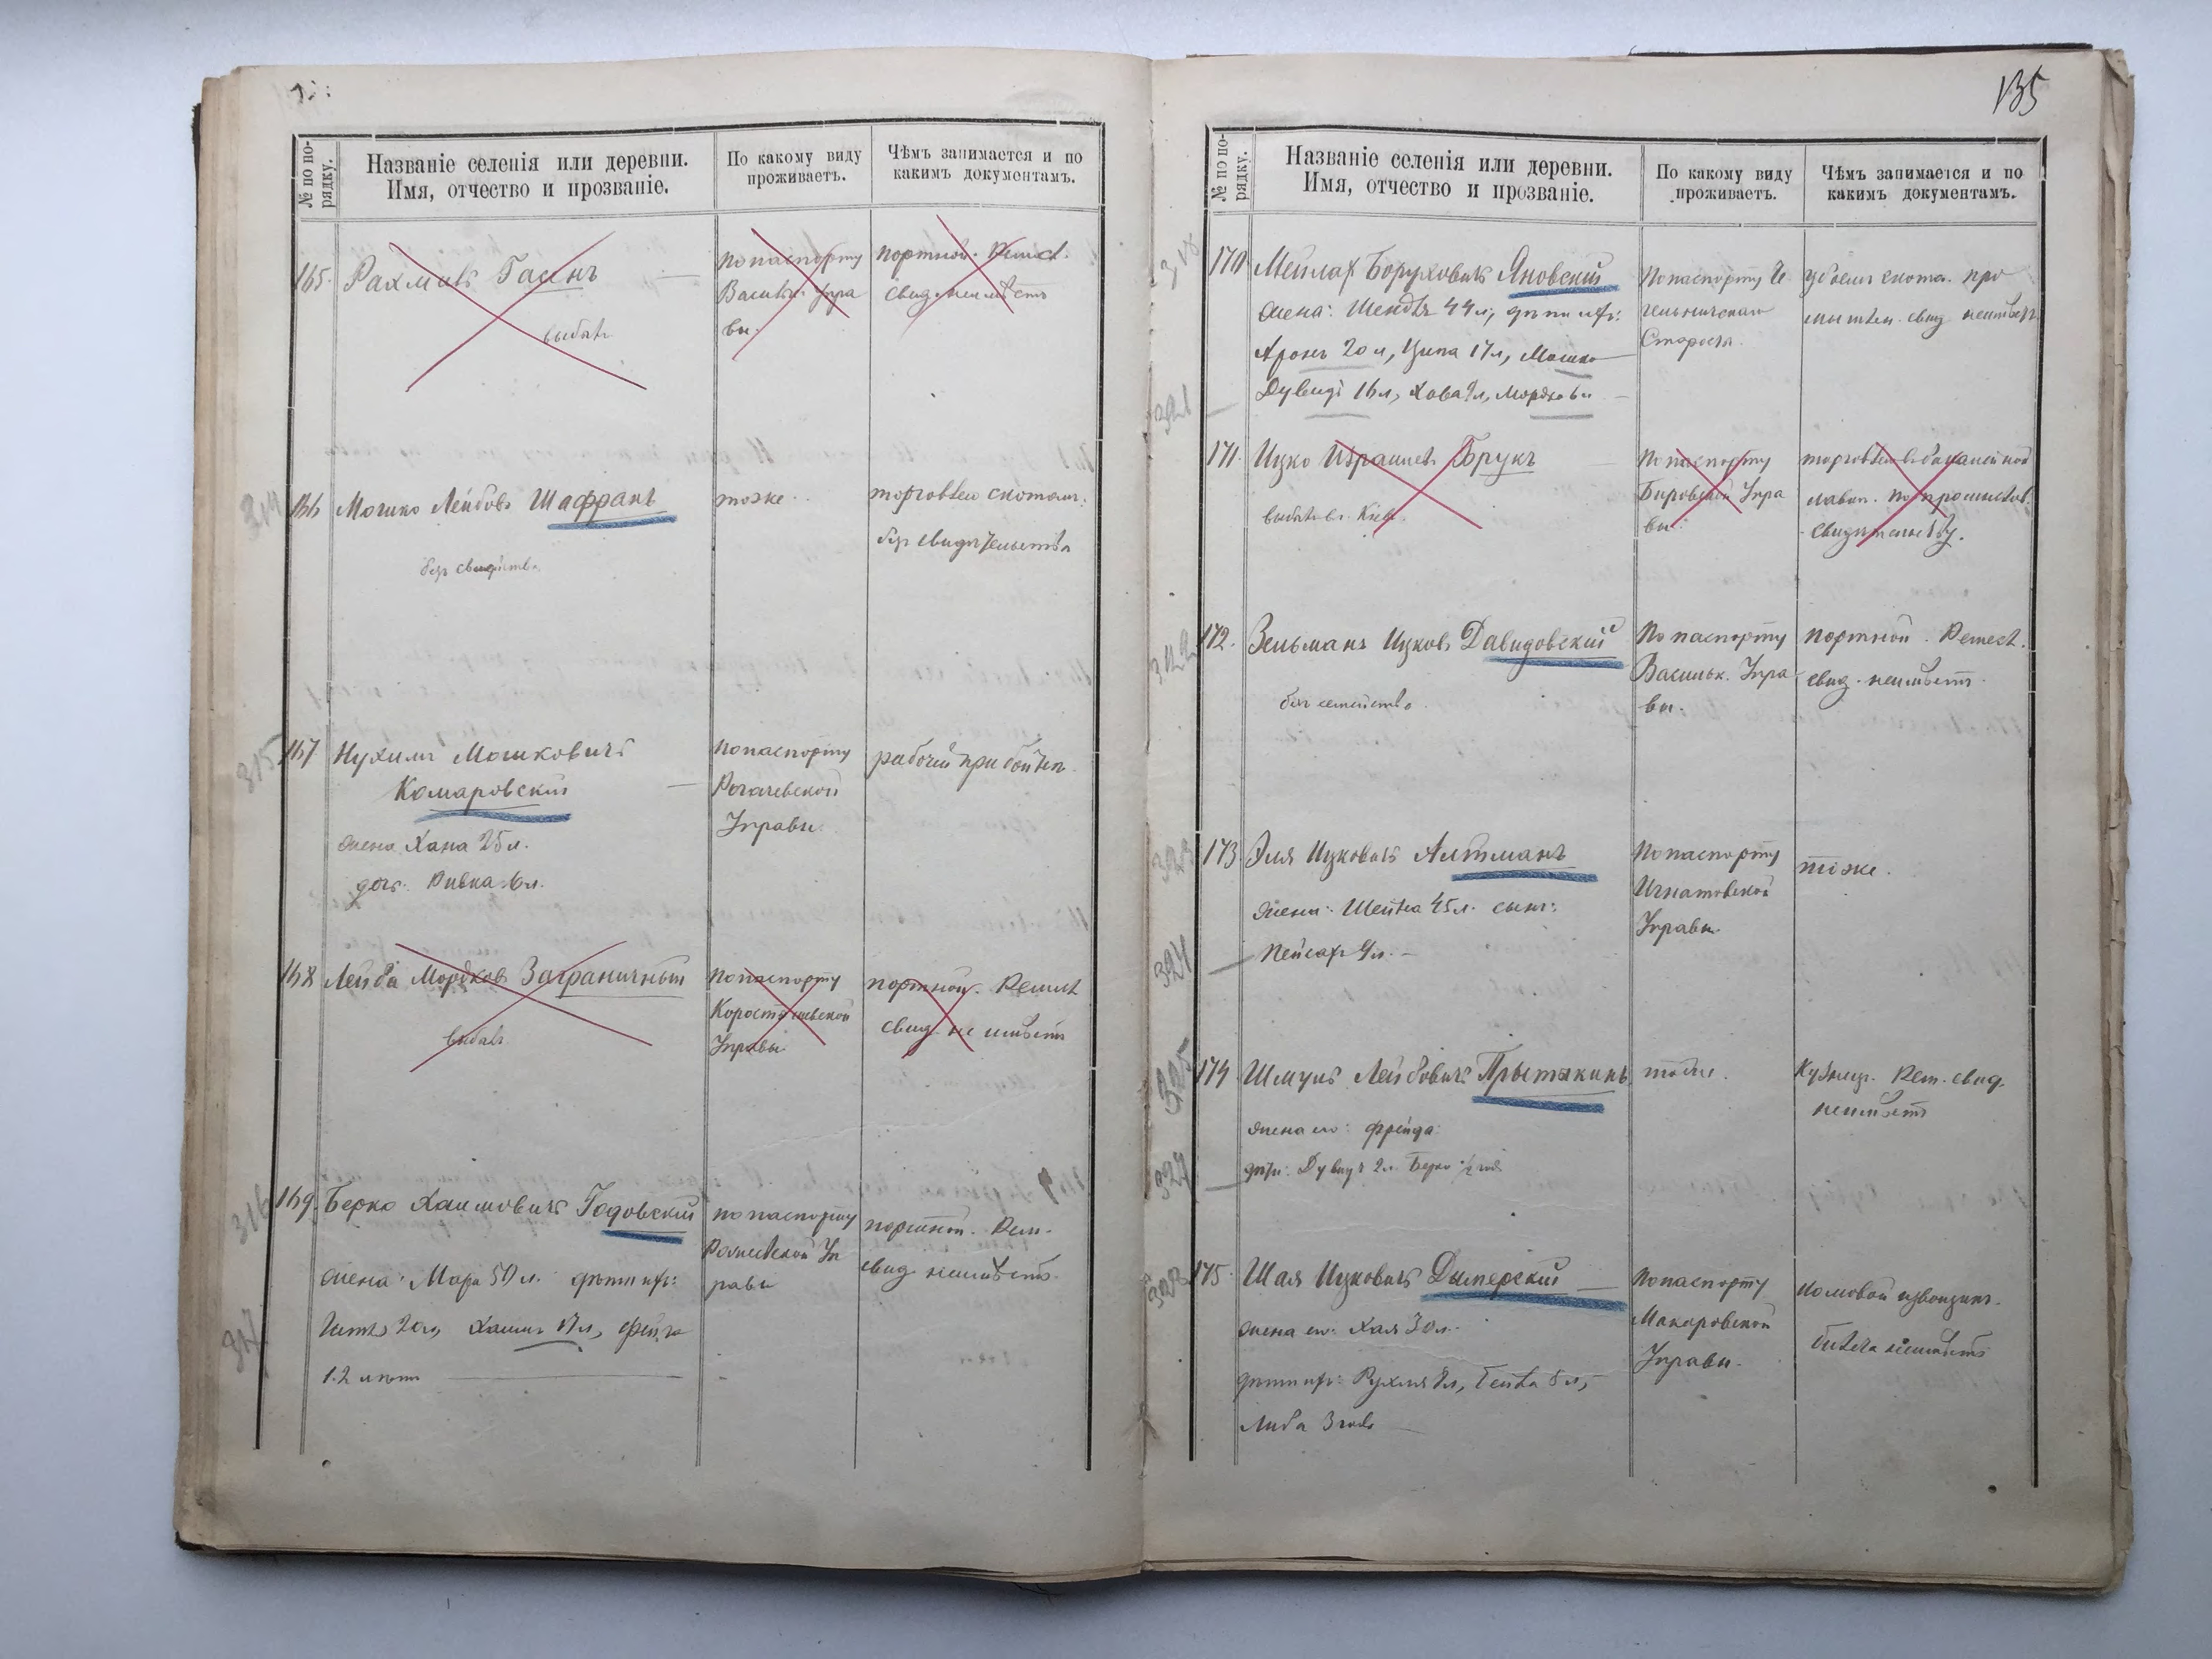 135
№ по по-
рядку.
Названіе селенія или деревни.
Имя, отчество и прозваніе.
По какому виду
проживаетъ.
Чѣмъ занимается и по
какимъ документамъ.
165. Рахмиль Гасинъ
выбылъ
По паспорту
Васильк. Упра
вы.
портной. Ремесл.
свид. неимѣетъ
314
166 Мошко Лейбовъ Шафранъ
безъ семейства
тоже
торговлею скотомъ.
безъ свидѣтельства
315
167 Нухимъ Мошковичъ
Комаровскій
жена Хана 25 л.
доч. Ривка 6 л.
По паспорту
Рогачевской
Управы.
рабочій при бойнѣ
168 Лейба Мордковъ Заграничный
выбылъ
По паспорту
Коростышевской
Управы
портной. Ремесл
свид. не имѣетъ
316
317
169. Берко Хаимовичъ Годовскій
жена: Мара 50 л. дѣти ихъ:
20 л, Хаимъ 17 л, Фейга
12 лѣтъ
по паспорту
Уп
равы
портной. Рем.
свид. неимѣетъ.
№ по по-
рядку.
Названіе селенія или деревни.
Имя, отчество и прозваніе.
По какому виду
проживаетъ.
Чѣмъ занимается и по
какимъ документамъ.
318
321
170 Мейлах Боруховичъ Яновскій
жена: Шендля 44 л, дѣти ихъ:
Аронъ 20 л, Ципа 17 л, Мошко
Дувидъ 16 л, Хова 9 л, Мордко 6 л
По паспорту
Старосты.
убоемъ скота. про
мысловаго свид неимѣетъ
171. Ицко Израилевъ Брукъ
выбылъ въ Кіевъ.
По паспорту
Упра
вы.
торговлею въ бакалейной
лавкѣ. по промыслов.
свидѣтельству.
322
172. Зельманъ Ицковъ Давидовскій
безъ семейства.
По паспорту
Васильк. Упра
вы.
портной. Ремесл.
свид. неимѣетъ.
323
324
173 Эля Ицковичъ Алтманъ
жена: Шейна 45 л. сынъ:
Пейсахъ 9 л.
По паспорту
Игнатовской
Управы.
тоже.
325
327
174 Шмуль Лейбовичъ Прытыкинъ
жена его: Фрейда
дѣти: Дувидъ 2 л. Берко ½ года
тоже.
Кузнецъ. Рем. свид.
неимѣетъ
328
175. Шая Ицковичъ Дымерскій
жена его: Хая 30 л.
дѣти ихъ: Рухля 8 л, Бейла 5 л,
Либа 3 года
По паспорту
Макаровской
Управы.
ломовой извощикъ.
билета неимѣетъ